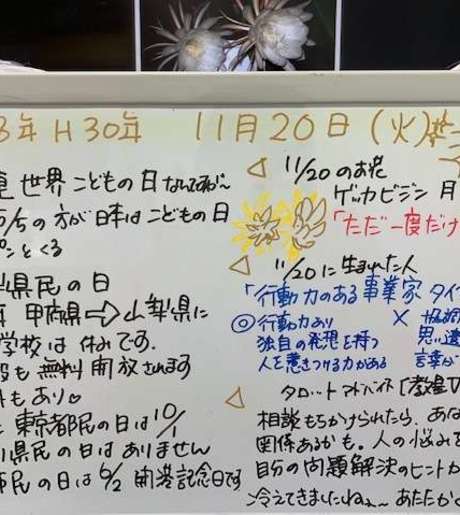 8年 H30年 11月20日(火)
世界こどもの日なんですね~
5/5の方が日本はこどもの日
ピンとくる
県民の日
甲府県⇨山梨県に
学校は休みです。
も無料開放されます
もあり。
東京都民の日は10/1
県民の日はありません
市民の日は6/2 開港記念日です
◁ 11/20のお花
ゲッカビジン 月
「ただ一度だけ
◁ 11/20に生まれた人
「行動力のある事業家タイ
◎行動力あり
独自の発想を持つ
人を惹きつける力がある
×
思い遣
言葉が
◁ タロットアドバイス「教皇
相談もちかけられたら、あな
関係あるかも。人の悩みを
自分の問題解決のヒントが
冷えてきましたねぇ~ あたたかく